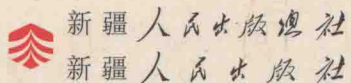 新疆人民出版總社
新疆人民出版社